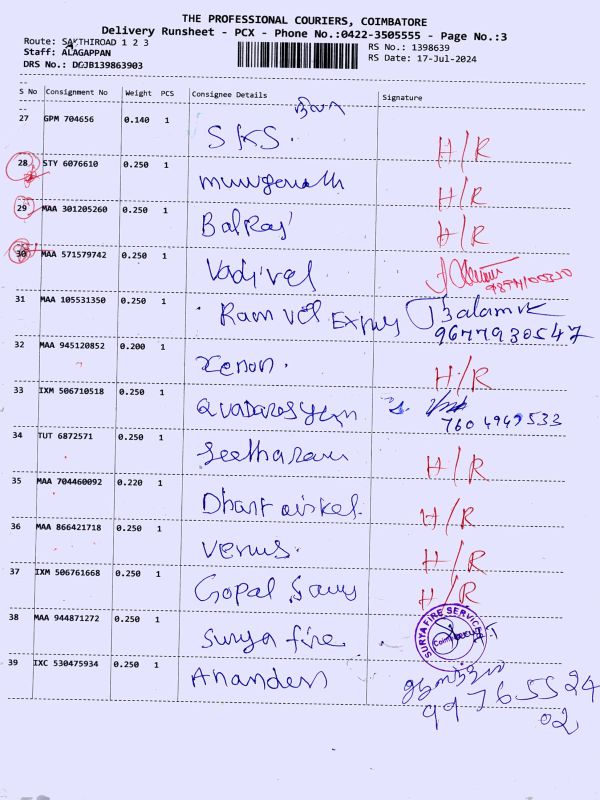 THE PROFESSIONAL COURIERS, COIMBATORE
Delivery Runsheet - PCX - Phone No.:0422-3505555 - Page No.:3
Route: SAKTHIROAD 1 2 3
RS No.: 1398639
Staff: ALAGAPPAN
RS Date: 17-Jul-2024
DRS No.: DCJB139863903
S No Consignment No Weight PCS Consignee Details Signature
27 GPM 704656 0.140 1 SKS. H/R
28 STY 6076610 0.250 1 H/R
29 MAA 301205260 0.250 1 BalRaj H/R
30 MAA 571579742 0.250 1 Vadivel
31 MAA 105531350 0.250 1 Ram vel 9677930547
32 MAA 945120852 0.200 1 Xenon. H/R
33 IXM 506710518 0.250 1 7604949533
34 TUT 6872571 0.250 1 Seetharam H/R
35 MAA 704460092 0.220 1 H/R
36 MAA 866421718 0.250 1 Venus. H/R
37 IXM 506761668 0.250 1 Gopal H/R
38 MAA 944871272 0.250 1 Surya fire SURYA FIRE SERVICE
39 IXC 530475934 0.250 1 9976552402